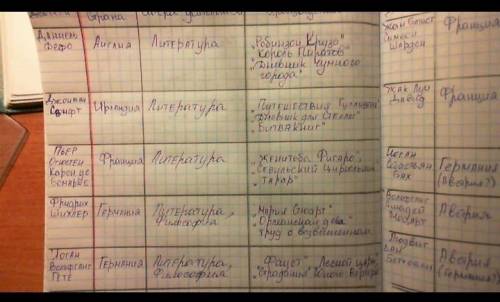 Страна
Даниель
Дефо
Англия
Литература
"Робинзон Крузо"
Король Пиратов"
"Дневник чумного
города"
Джонатан
Свифт
Ирландия
Литература
"Путешествия Гулливера"
"Дневник для Стеллы"
"Битва книг"
Пьер
Огюстен
Карон де
Бомарше
Франция
Литература
"Женитьба Фигаро",
"Севильский цирюльник"
"Тарар"
Фридрих
Шиллер
Германия
Литература,
Философия
"Мария Стюарт"
"Орлеанская дева"
труд о возвышенном
Иоган
Вольфганг
Гёте
Германия
Литература,
Философия
"Фауст", "Лесной царь",
"Страдания юного Вертера"
Жан Батист
Симеон
Шарден
Франция
Жак Луи
Давид
Франция
Иоган
Себастьян
Бах
Германия
(Австрия?)
Вольфганг
Амадей
Моцарт
Австрия
Людвиг
ван
Бетховен
Австрия
(Германия)